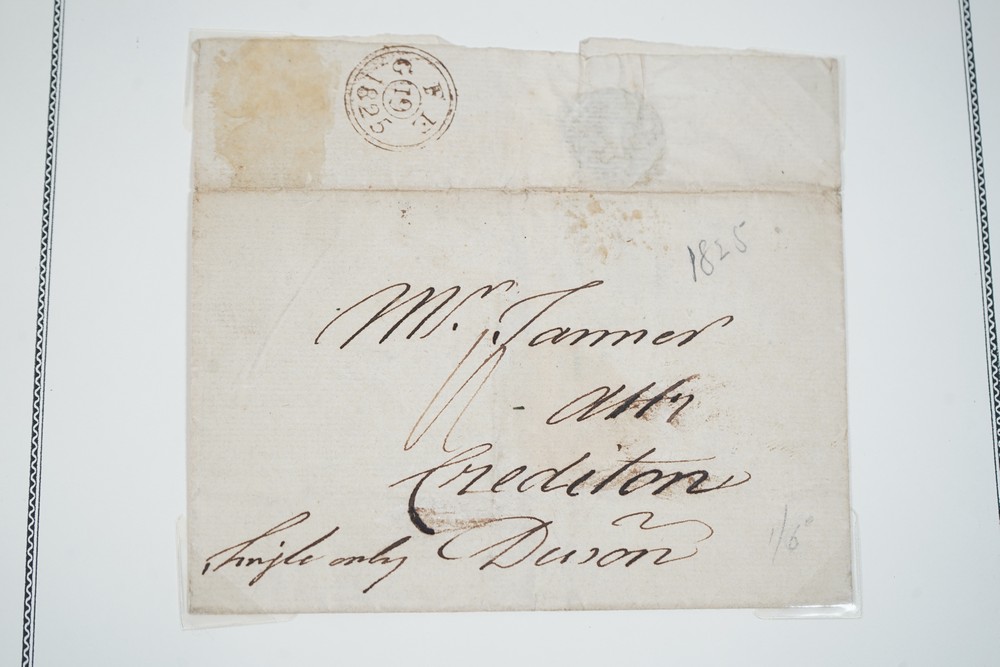 FE
G
19
1825
1825
Mr. Tanner
- Atty
Crediton
Single only Devon
1/6